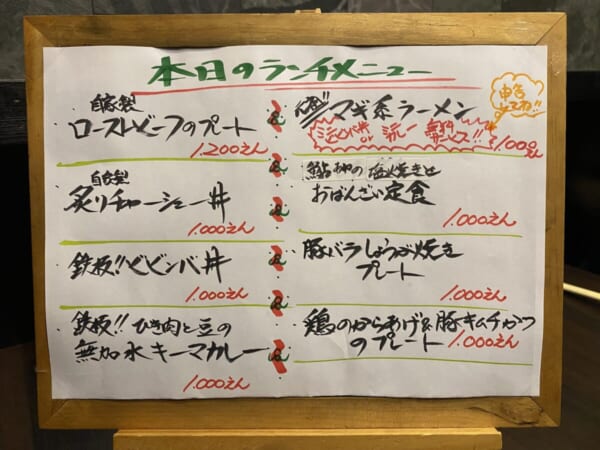 本日のランチメニュー
自家製
ローストビーフのプレート
1.200えん
自家製
炙りチャーシュー丼
1.000えん
鉄板!!ビビンバ丼
1.000えん
鉄板!!ひき肉と豆の
無加水キーマカレー
1.000えん
マギ系ラーメン
申告
してね!!
無料
サービス!!
1.000えん
塩焼きと
おばんざい定食
1.000えん
豚バラしょうが焼き
プレート
1.000えん
鶏のからあげ&豚キムチがつ
のプレート 1.000えん